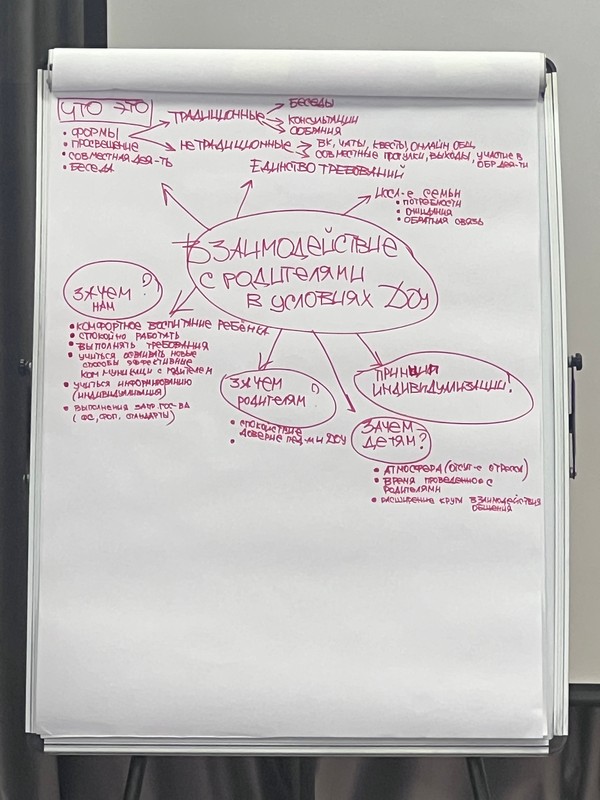 ЧТО ЭТО
• ФОРМЫ
• ПРОСВЕЩЕНИЕ
• СОВМЕСТНАЯ ДЕЯ-ТЬ
• БЕСЕДА
ТРАДИЦИОННЫЕ
БЕСЕДЫ
КОНСУЛЬТАЦИИ
СОБРАНИЯ
НЕТРАДИЦИОННЫЕ
ВК, ЧАТЫ, КВЕСТЫ, ОНЛАЙН ОБЩ.
СОВМЕСТНЫЕ ПРОГУЛКИ, ВЫХОДЫ, УЧАСТИЕ В
ОБР. ДЕЯ-ТИ
ЕДИНСТВО ТРЕБОВАНИЙ
ИССЛ-Е СЕМЬИ
• ПОТРЕБНОСТИ
• ОЖИДАНИЯ
• ОБРАТНАЯ СВЯЗЬ
ВЗАИМОДЕЙСТВИЕ
С РОДИТЕЛЯМИ
В УСЛОВИЯХ ДОУ
ЗАЧЕМ ?
НАМ
• КОМФОРТНОЕ ВОСПИТАНИЕ РЕБЁНКА
• СПОКОЙНО РАБОТАТЬ
• ВЫПОЛНЯТЬ ТРЕБОВАНИЯ
• УЧИТЬСЯ ОСВАИВАТЬ НОВЫЕ
СПОСОБЫ ЭФФЕКТИВНЫЕ
КОММУНИКАЦИИ С РОДИТЕЛЕМ
• УЧИТЬСЯ ИНФОРМИРОВАНИЮ
(ИНДИВИДУАЛИЗАЦИЯ)
• ВЫПОЛНЕНИЯ ЗАПР. ГОС-ВА
(ФС, ФОП, СТАНДАРТЫ)
ЗАЧЕМ ?
РОДИТЕЛЯМ
• СПОКОЙСТВИЕ
• ДОВЕРИЕ ПЕД-МИ ДОУ
ПРИНЦИП
ИНДИВИДУАЛИЗАЦИИ!
ЗАЧЕМ
ДЕТЯМ?
• АТМОСФЕРА (ОТСУТ-Е СТРЕССА)
• ВРЕМЯ ПРОВЕДЕННОЕ С
РОДИТЕЛЯМИ
• РАСШИРЕНИЕ КРУГА ВЗАИМОДЕЙСТВИЯ
ОБЩЕНИЯ